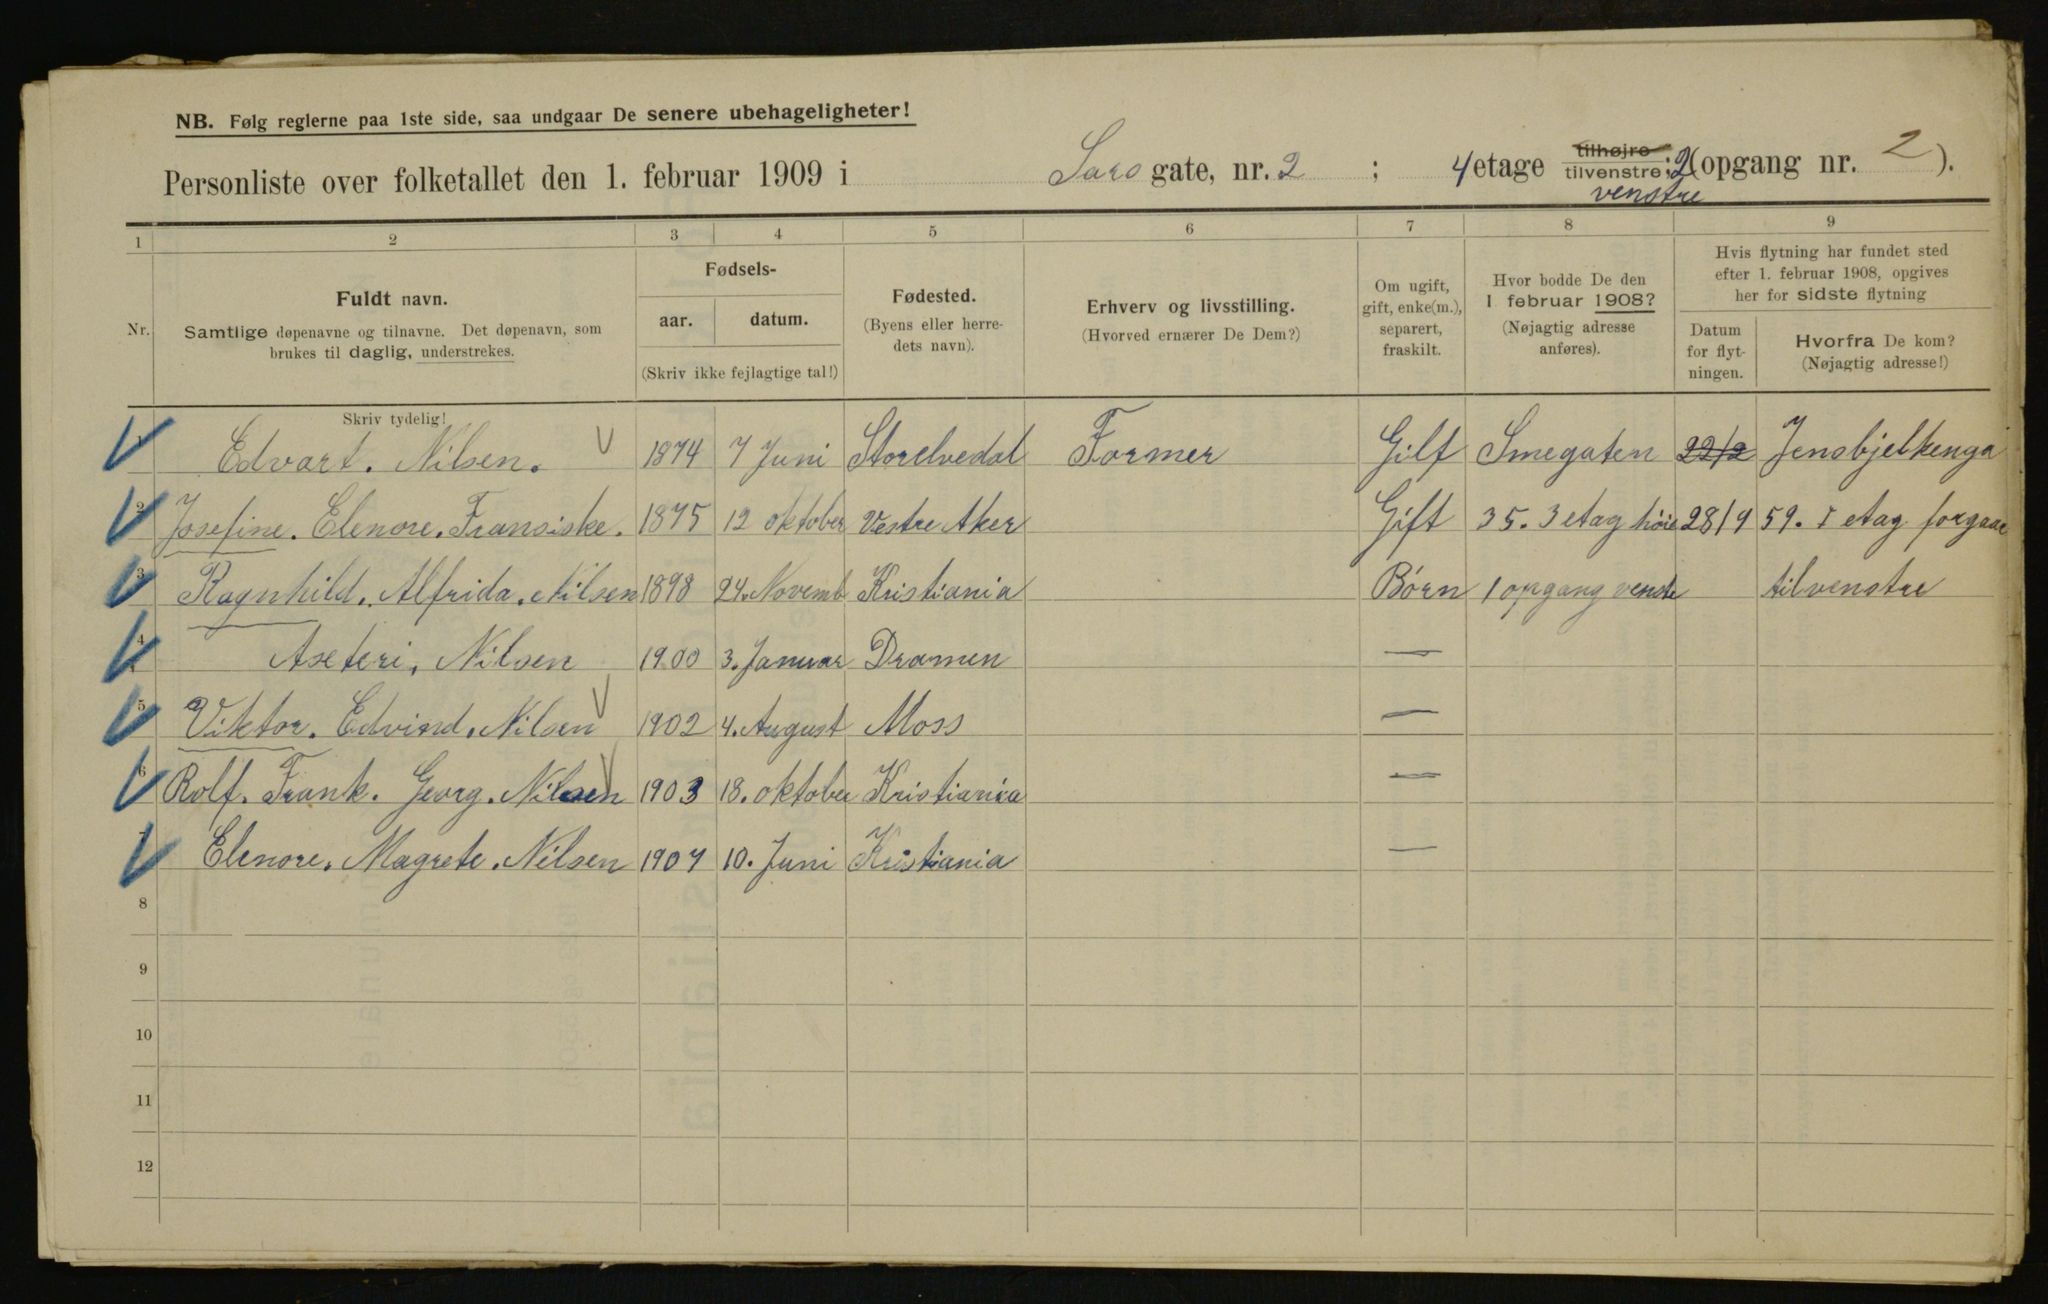 NB. Følg reglerne paa 1ste side, saa undgaar De senere ubehageligheter!
Personliste over folketallet den 1. februar 1909 i Sars gate, nr. 2 ; 4 etage tilhøjre tilvenstre ; 2 venstre (opgang nr. 2 ).
1 2 3 4 5 6 7 8 9
Nr.
Fuldt navn.
Samtlige døpenavne og tilnavne. Det døpenavn, som
brukes til daglig, understrekes.
Fødsels-
aar. datum.
(Skriv ikke fejlagtige tal!)
Fødested.
(Byens eller herre-
dets navn).
Erhverv og livsstilling.
(Hvorved ernærer De Dem?)
Om ugift,
gift, enke(m.),
separert,
fraskilt.
Hvor bodde De den
1 februar 1908?
(Nøjagtig adresse
anføres).
Hvis flytning har fundet sted
efter 1. februar 1908, opgives
her for sidste flytning
Datum
for flyt-
ningen.
Hvorfra De kom?
(Nøjagtig adresse!)
Skriv tydelig!
1 Edvart. Nilsen. 1874 7 Juni Storelvedal Former Gilf Smegaten 22/2 Jensbjelkenga
2 Josefine. Elenore. Fransiske. 1875 12 oktober Vestre Aker Gift 35. 3 etag høie 28/9 59. I etag forgaar
3 Ragnhild. Alfrida. Nilsen 1898 24. Novemb Kristiania Børn 1 opgang venste tilvenstre
4 Aseteri. Nilsen 1900 3. Januar Dramen —
5 Viktor. Edvind. Nilsen 1902 4. August Moss —
6 Rolf. Frank. Georg. Nilsen 1903 18. oktober Kristiania —
7 Elenore. Magrete. Nilsen 1907 10. Juni Kristiania —
8
9
10
11
12